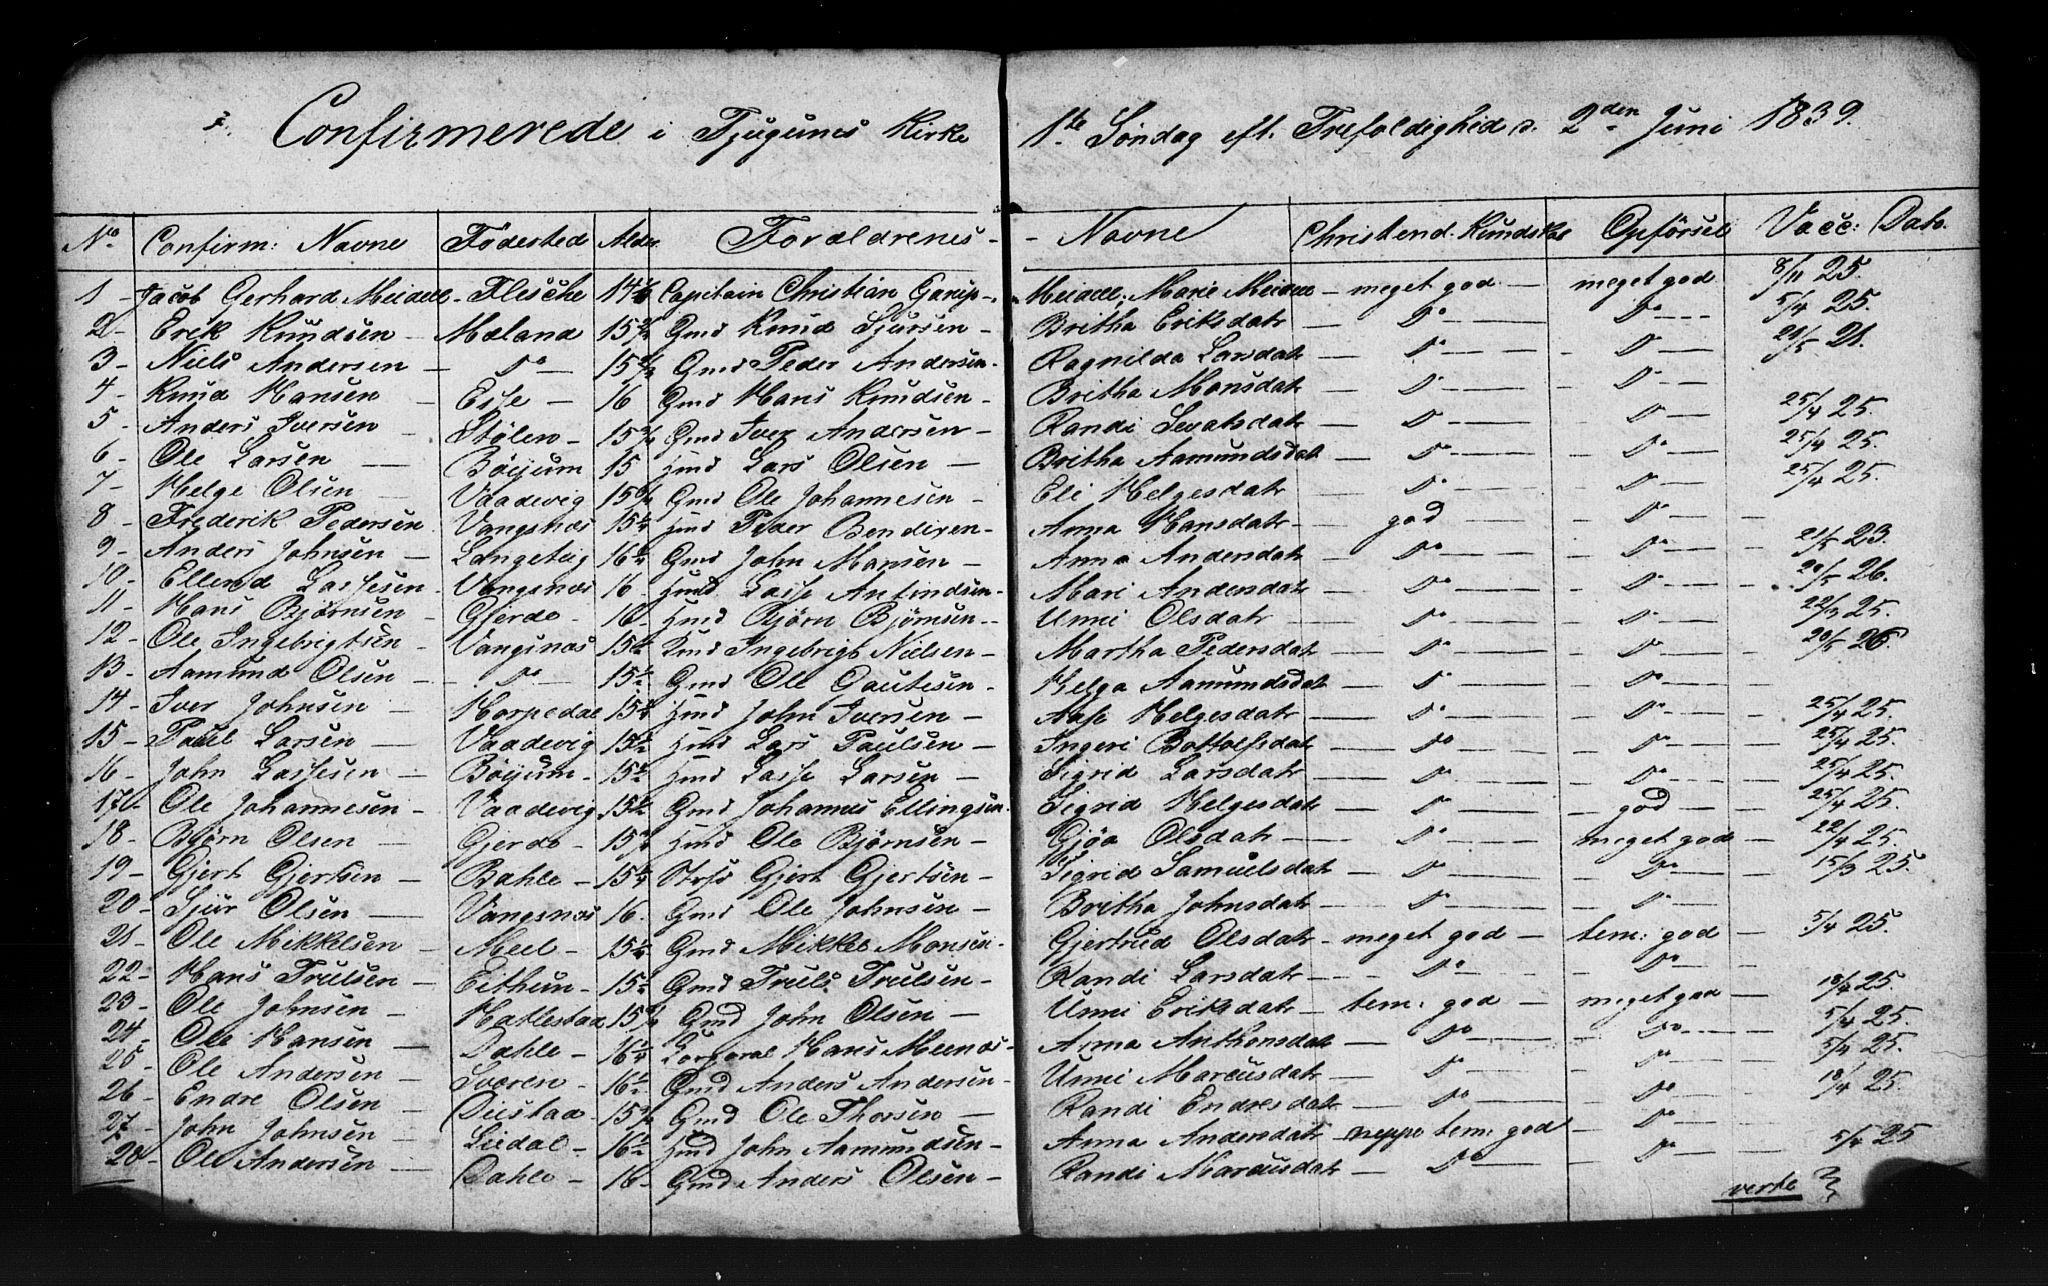 Confirmerede i Tjugums Kirke 1te Søndag eft. Trefoldighed d. 2den Juni 1839.
No Confirm: Navne Fødested Alder Forældrenes Navne Christend. Kundskab Opførsel Vacc: Dato.
1 Jacob Gerhard Meidell Flesche 14 Capitain Christian Garup Meidell, Marie Meidell meget god meget god 8/11 25.
2 Erik Knudsen Mæland 15 Gmd Knud Sjursen Britha Eriksdatr Do Do 5/4 25.
3 Niels Andersen Do 15 Gmd Peder Andersen Ragnilda Larsdatr Do Do 21.
4 Knud Hansen Esse 16 Gmd Hans Knudsen Britha Monsdatr Do Do
5 Anders Iversen Stølen 15 Gmd Iver Andersen Randi Sevatsdatr Do Do 25/4 25.
6 Ole Larsen Bøyum 15 Hmd Lars Olsen Britha Aamundsdat Do Do 25/4 25.
7 Helge Olsen Vaadevig 15 Gmd Ole Johannesen Eli Helgesdatr Do Do 25/4 25.
8 Frederik Pedersen Vangsnæs 15 Hmd Peder Bendixen Anna Hansdatr god Do
9 Anders Johnsen Langeteig 16 Gmd John Monsen Anna Andersdatr Do Do 21/5 23.
10 Ellend Lassesen Vangsnæs 16 Hmd Lasse Anfindsen Mari Andersdatr Do Do 20/5 26.
11 Hans Bjørnsen Gjerde 16 Hmd Bjørn Bjørnsen Unni Olsdatr Do Do 22/3 25.
12 Ole Ingebrigtsen Vangsnæs 15 Hmd Ingebrigt Nielsen Martha Pedersdat Do Do 20/5 26.
13 Aamund Olsen Do 15 Gmd Ole Gautesen Helga Aamundsdat Do Do
14 Iver Johnsen Horpedal 15 Hmd John Iversen Aase Helgesdatr Do Do 25/4 25.
15 Paul Larsen Vaadevig 15 Hmd Lars Paulsen Ingeri Bottolfsdat Do Do 25/4 25.
16 John Lassesen Bøyum 15 Hmd Lasse Larsen Sigrid Larsdatr Do Do 25/4 25.
17 Ole Johannesen Vaadevig 15 Gmd Johannes Ellingsen Sigrid Helgesdatr Do god 25/4 25.
18 Bjørn Olsen Gjerde 15 Hmd Ole Bjørnsen Gjøa Olsdatr Do meget god 22/4 25.
19 Gjert Gjertsen Bahle 15 Strs Gjert Gjertsen Sigrid Samuelsdat Do Do 15/3 25.
20 Sjur Olsen Vangsnæs 16 Gmd Ole Johnsen Britha Johnsdatr Do Do
21 Ole Mikkelsen Meel 15 Gmd Mikkel Monsen Gjertrud Olsdatr meget god tem: god 5/4 25.
22 Hans Trulsen Eithun 15 Gmd Truls Trulsen Randi Larsdatr Do Do
23 Ole Johnsen Hatlestad 15 Gmd John Olsen Unni Eriksdatr tem: god meget god 25.
24 Ole Hansen Dahle 16 Corporal Hans Meenæs Anna Anthonsdat Do Do 5/4 25.
25 Ole Andersen Sværen 16 Gmd Anders Andersen Unni Marcusdatr Do Do 5/4 25.
26 Endre Olsen Duestad 15 Gmd Ole Thorsen Randi Endresdatr Do Do 18/4 25.
27 John Johnsen Liedal 16 Hmd John Aamundsen Anna Andersdatr neppe tem: god Do
28 Ole Andersen Dahle 18 Gmd Anders Olsen Randi Marcusdatr Do Do 5/4 25
verte